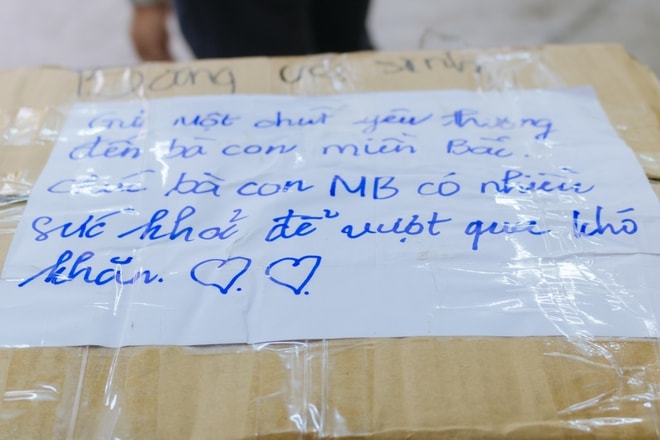 Băng vệ sinh
Gửi một chút yêu thương
đến bà con miền Bắc.
Chúc bà con MB có nhiều
sức khoẻ để vượt qua khó
khăn. ♡. ♡.